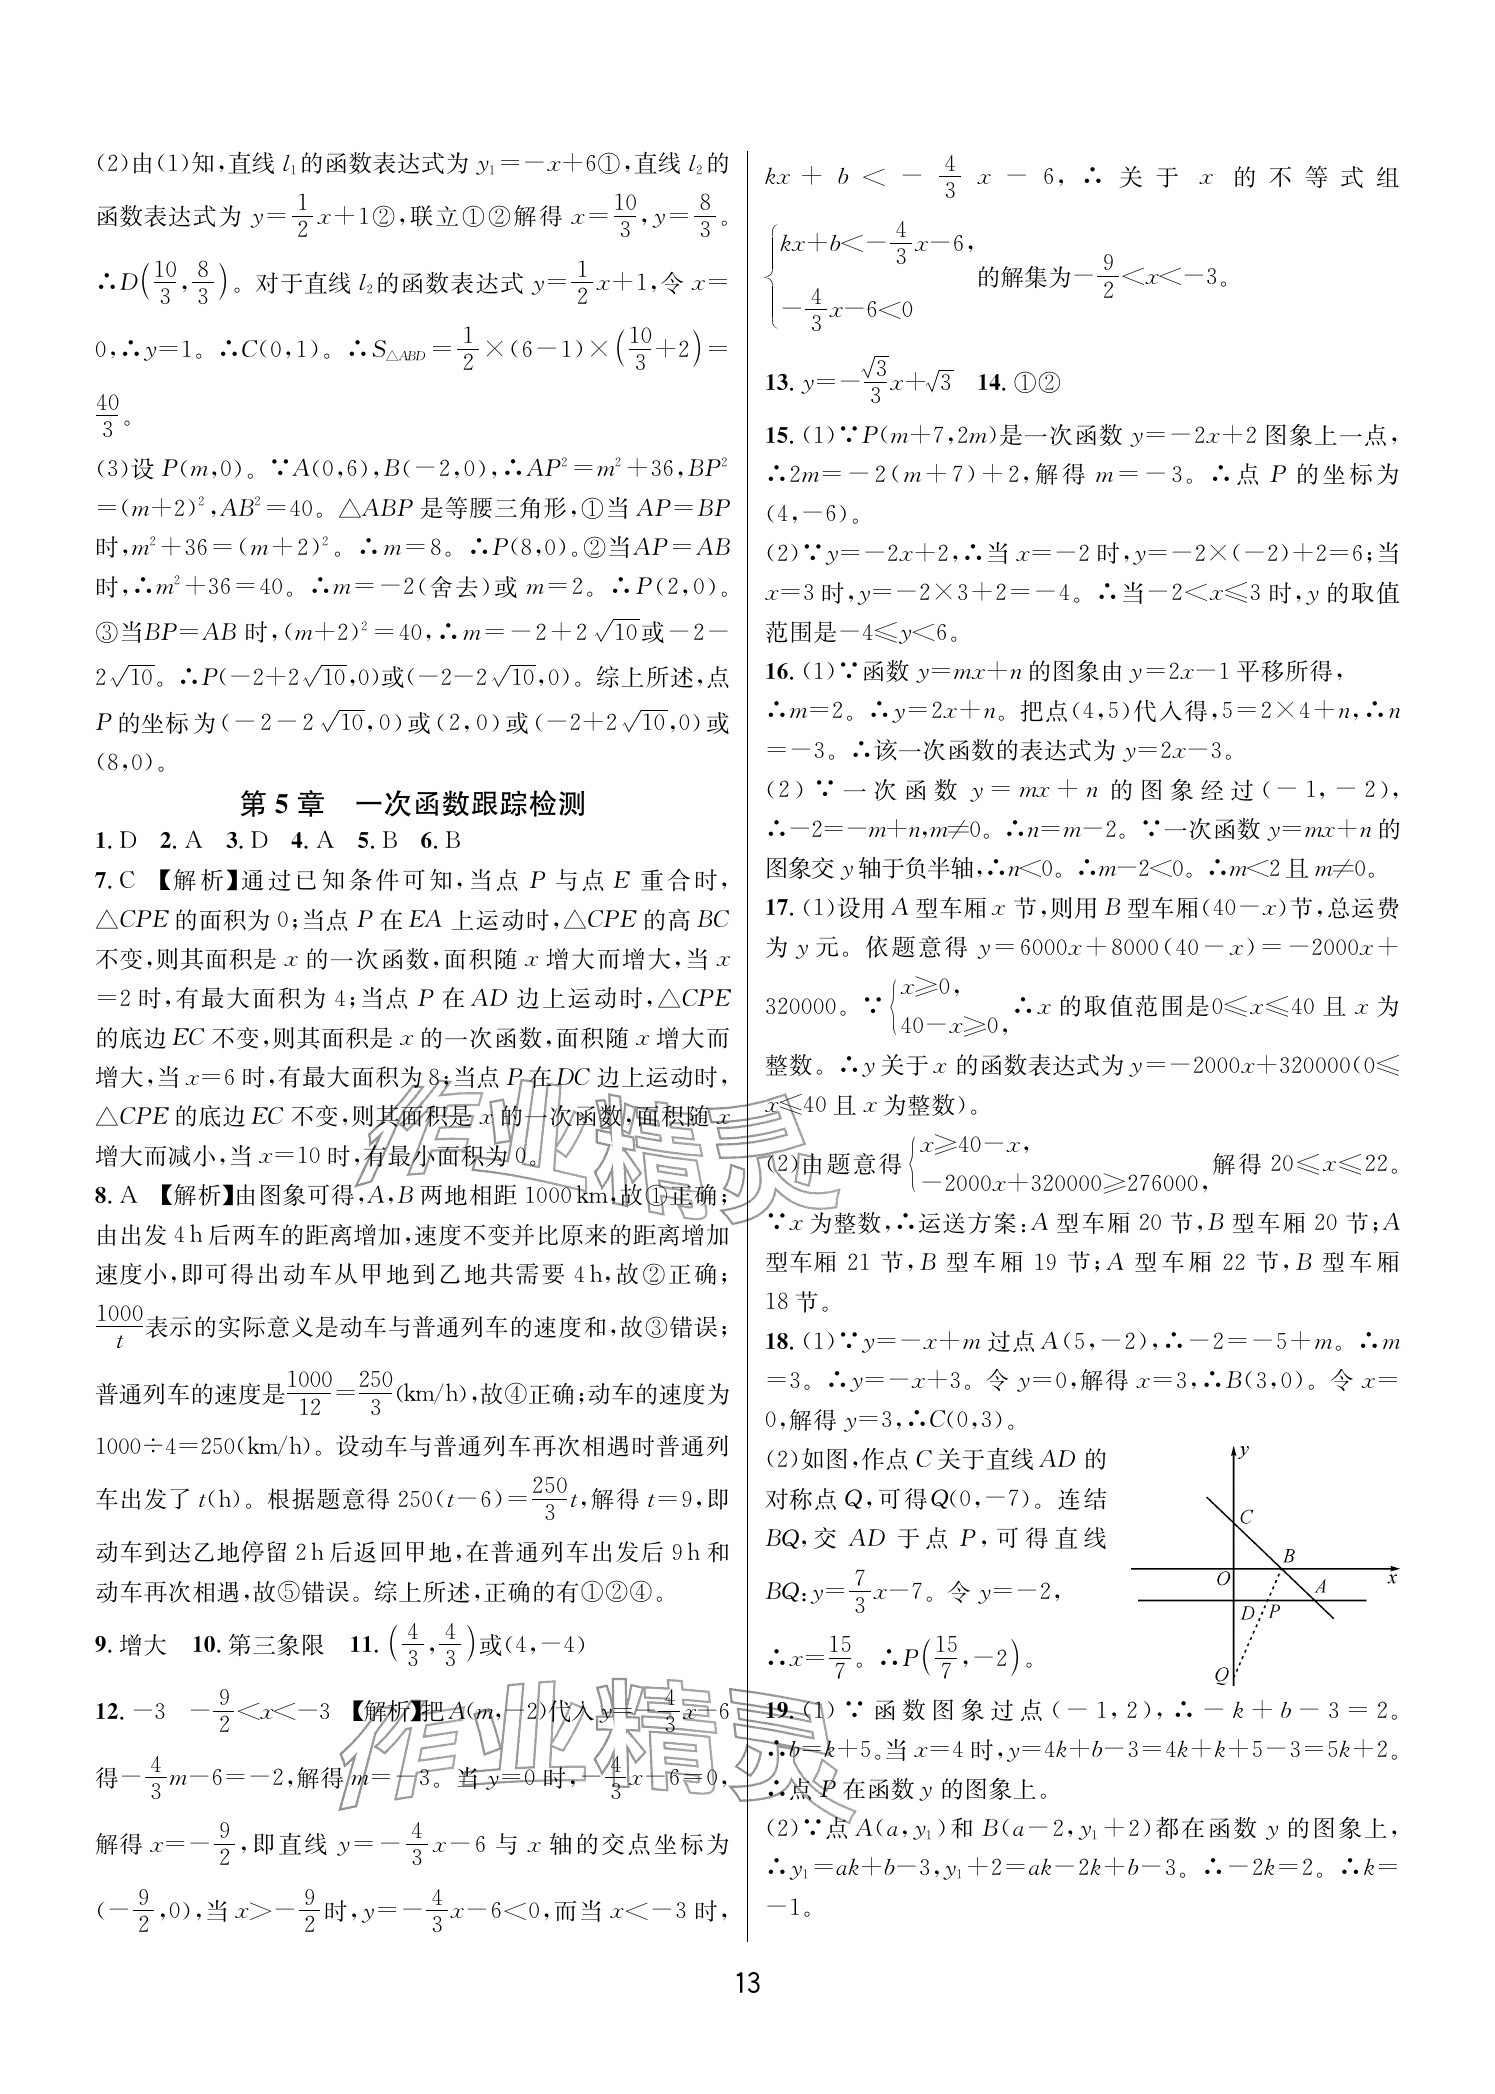 (2)由(1)知,直线 l₁的函数表达式为 y₁=-x+6①,直线 l₂的
函数表达式为 y=1/2x+1②,联立①②解得 x=10/3,y=8/3。
∴D(10/3,8/3)。对于直线 l₂的函数表达式 y=1/2x+1,令 x=
0,∴y=1。∴C(0,1)。∴S△ABD=1/2×(6-1)×(10/3+2)=
40/3。
(3)设 P(m,0)。∵A(0,6),B(-2,0),∴AP²=m²+36,BP²
=(m+2)²,AB²=40。△ABP 是等腰三角形,①当 AP=BP
时,m²+36=(m+2)²。∴m=8。∴P(8,0)。②当AP=AB
时,∴m²+36=40。∴m=-2(舍去)或 m=2。∴P(2,0)。
③当BP=AB 时,(m+2)²=40,∴m=-2+2√10或-2-
2√10。∴P(-2+2√10,0)或(-2-2√10,0)。综上所述,点
P 的坐标为(-2-2√10,0)或(2,0)或(-2+2√10,0)或
(8,0)。
第 5 章 一次函数跟踪检测
1. D 2. A 3. D 4. A 5. B 6. B
7. C 【解析】通过已知条件可知,当点 P 与点 E 重合时,
△CPE 的面积为 0;当点 P 在 EA 上运动时,△CPE 的高 BC
不变,则其面积是 x 的一次函数,面积随 x 增大而增大,当 x
=2 时,有最大面积为 4;当点 P 在 AD 边上运动时,△CPE
的底边 EC 不变,则其面积是 x 的一次函数,面积随 x 增大而
增大,当 x=6 时,有最大面积为 8;当点 P 在 DC 边上运动时,
△CPE 的底边 EC 不变,则其面积是 x 的一次函数,面积随 x
增大而减小,当 x=10 时,有最小面积为 0。
8. A 【解析】由图象可得,A,B 两地相距 1000 km,故①正确;
由出发 4 h 后两车的距离增加,速度不变并比原来的距离增加
速度小,即可得出动车从甲地到乙地共需要 4 h,故②正确;
1000/t表示的实际意义是动车与普通列车的速度和,故③错误;
普通列车的速度是1000/12=250/3(km/h),故④正确;动车的速度为
1000÷4=250(km/h)。设动车与普通列车再次相遇时普通列
车出发了 t(h)。根据题意得 250(t-6)=250/3t,解得 t=9,即
动车到达乙地停留 2 h 后返回甲地,在普通列车出发后 9 h 和
动车再次相遇,故⑤错误。综上所述,正确的有①②④。
9. 增大 10. 第三象限 11. (4/3,4/3)或(4,-4)
12. -3 -9/2<x<-3 【解析】把 A(m,-2)代入 y=-4/3x-6
得-4/3m-6=-2,解得 m=-3。当 y=0 时,-4/3x-6=0,
解得 x=-9/2,即直线 y=-4/3x-6 与 x 轴的交点坐标为
(-9/2,0),当 x>-9/2时,y=-4/3x-6<0,而当 x<-3 时,
kx+b<-4/3x-6,∴关于 x 的不等式组
{kx+b<-4/3x-6,
-4/3x-6<0 的解集为-9/2<x<-3。
13. y=-√3/3x+√3 14. ①②
15. (1)∵P(m+7,2m)是一次函数 y=-2x+2 图象上一点,
∴2m=-2(m+7)+2,解得 m=-3。∴点 P 的坐标为
(4,-6)。
(2)∵y=-2x+2,∴当 x=-2 时,y=-2×(-2)+2=6;当
x=3 时,y=-2×3+2=-4。∴当-2<x≤3 时,y 的取值
范围是-4≤y<6。
16. (1)∵函数 y=mx+n 的图象由 y=2x-1 平移所得,
∴m=2。∴y=2x+n。把点(4,5)代入得,5=2×4+n,∴n
=-3。∴该一次函数的表达式为 y=2x-3。
(2)∵一次函数 y=mx+n 的图象经过(-1,-2),
∴-2=-m+n,m≠0。∴n=m-2。∵一次函数 y=mx+n 的
图象交 y 轴于负半轴,∴n<0。∴m-2<0。∴m<2 且 m≠0。
17. (1)设用 A 型车厢 x 节,则用 B 型车厢(40-x)节,总运费
为 y 元。依题意得 y=6000x+8000(40-x)=-2000x+
320000。∵{x≥0, 40-x≥0, ∴x 的取值范围是0≤x≤40 且 x 为
整数。∴y 关于 x 的函数表达式为 y=-2000x+320000(0≤
x≤40 且 x 为整数)。
(2)由题意得{x≥40-x, -2000x+320000≥276000, 解得 20≤x≤22。
∵x 为整数,∴运送方案:A 型车厢 20 节,B 型车厢 20 节;A
型车厢 21 节,B 型车厢 19 节;A 型车厢 22 节,B 型车厢
18 节。
18. (1)∵y=-x+m 过点 A(5,-2),∴-2=-5+m。∴m
=3。∴y=-x+3。令 y=0,解得 x=3,∴B(3,0)。令 x=
0,解得 y=3,∴C(0,3)。
(2)如图,作点 C 关于直线 AD 的
对称点 Q,可得Q(0,-7)。连结
BQ,交 AD 于点 P,可得直线
BQ:y=7/3x-7。令 y=-2,
∴x=15/7。∴P(15/7,-2)。
y
C
B
O
x
A
D
P
Q
19. (1)∵函数图象过点(-1,2),∴-k+b-3=2。
∴b=k+5。当 x=4 时,y=4k+b-3=4k+k+5-3=5k+2。
∴点 P 在函数 y 的图象上。
(2)∵点 A(a,y₁)和 B(a-2,y₁+2)都在函数 y 的图象上,
∴y₁=ak+b-3,y₁+2=ak-2k+b-3。∴-2k=2。∴k=
-1。
作业精灵
作业精灵
13